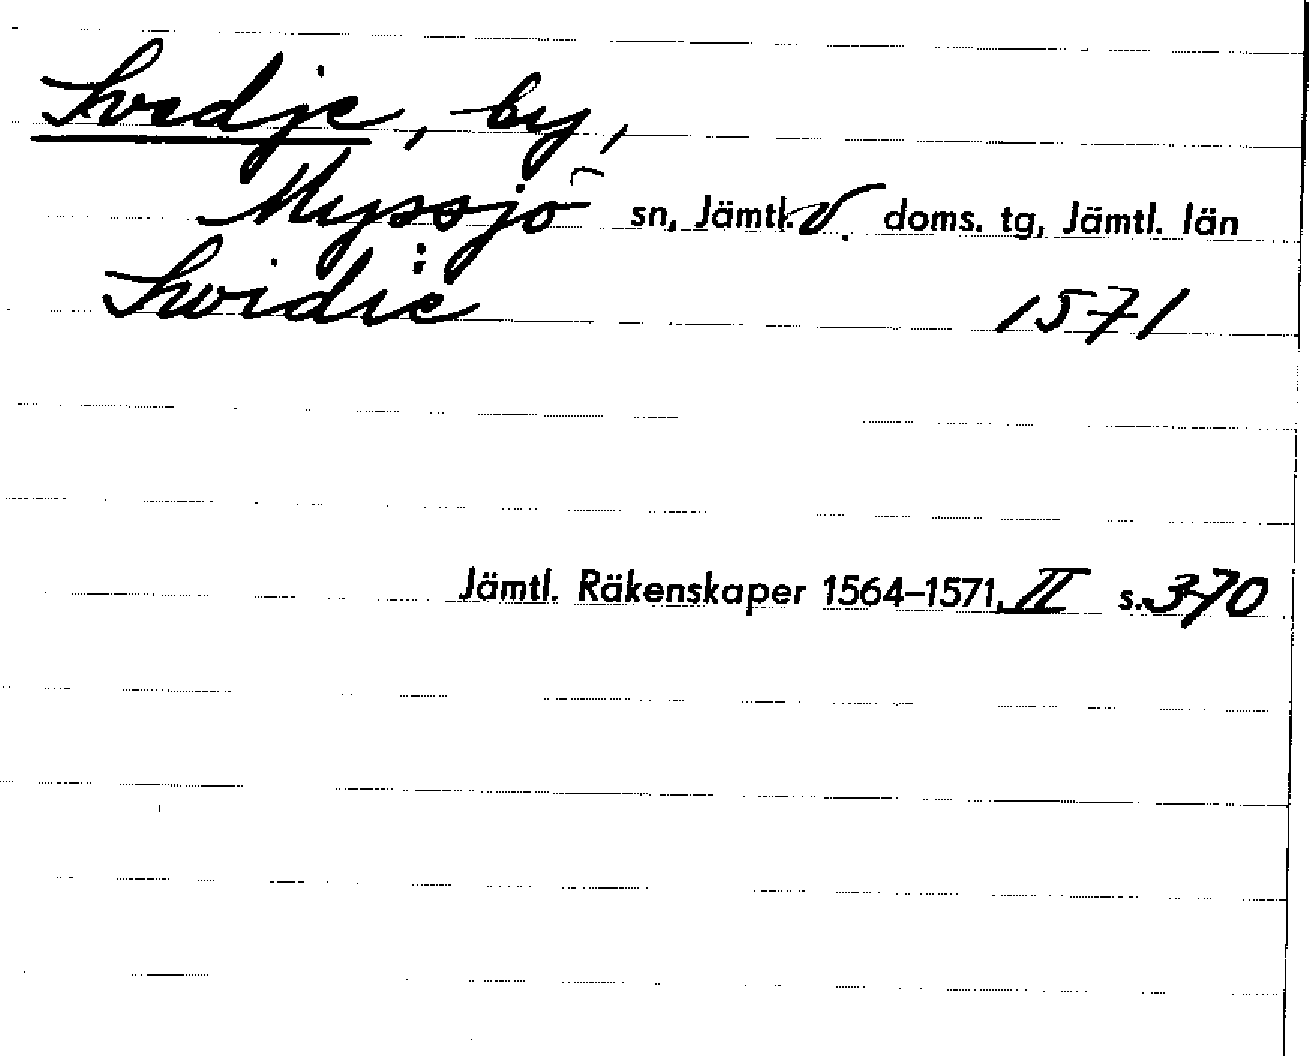 Svedje, by,
Myssjö sn, Jämtl. v. doms. tg, Jämtl. län
Svidie 1571
Jämtl. Räkenskaper 1564–1571, II s. 370